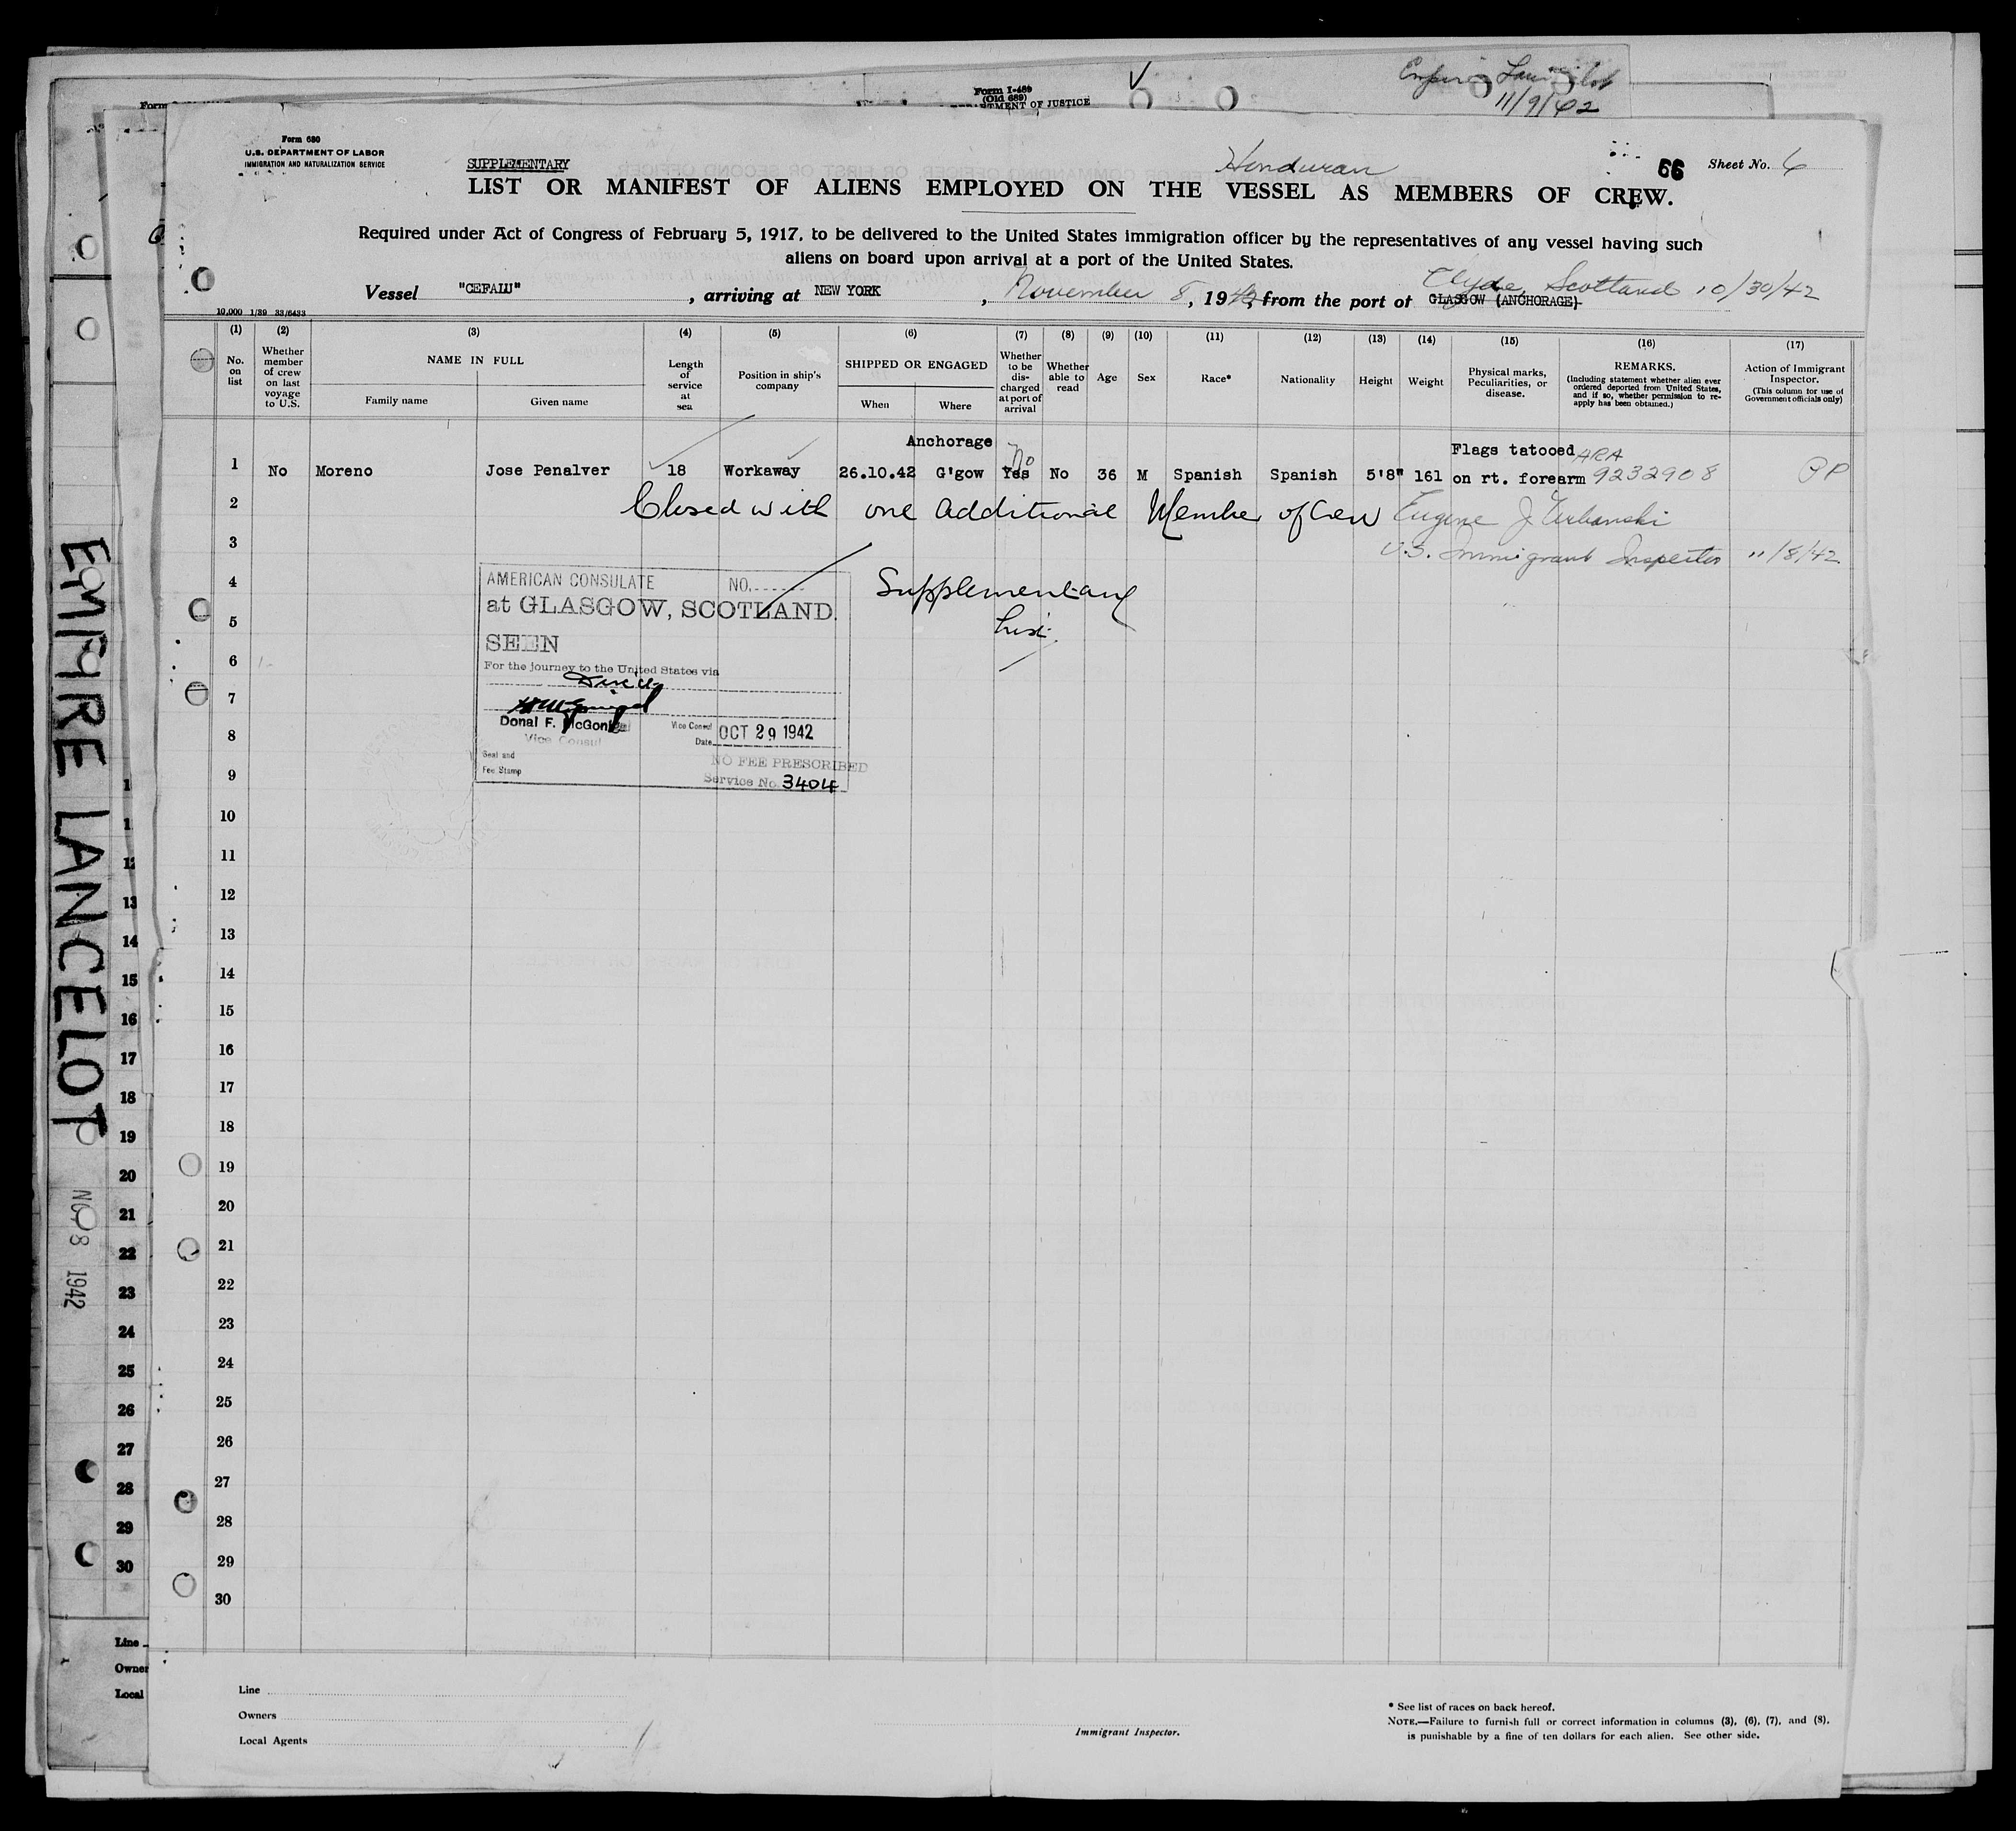 Form I-489
(Old 689)
11/9/42
Form 680
U.S. DEPARTMENT OF LABOR
IMMIGRATION AND NATURALIZATION SERVICE
SUPPLEMENTARY
Honduran
66 Sheet No. 6
LIST OR MANIFEST OF ALIENS EMPLOYED ON THE VESSEL AS MEMBERS OF CREW.
Required under Act of Congress of February 5, 1917, to be delivered to the United States immigration officer by the representatives of any vessel having such
aliens on board upon arrival at a port of the United States.
Clyde, Scotland 10/30/42
Vessel "CEFALU", arriving at NEW YORK, November 8, 1942, from the port of GLASGOW (ANCHORAGE)
10,000 1/39 33/6433
(1) (2) (3) (4) (5) (6) (7) (8) (9) (10) (11) (12) (13) (14) (15) (16) (17)
No. on list
Whether member of crew on last voyage to U.S.
NAME IN FULL
Family name
Given name
Length of service at sea
Position in ship's company
SHIPPED OR ENGAGED
When
Where
Whether to be discharged at port of arrival
Whether able to read
Age
Sex
Race*
Nationality
Height
Weight
Physical marks, Peculiarities, or disease.
REMARKS.
(Including statement whether alien ever ordered deported from United States, and if so, whether permission to re-apply has been obtained.)
Action of Immigrant Inspector.
(This column for use of Government officials only)
Anchorage No Flags tatooed ARA
1 No Moreno Jose Penalver 18 Workaway 26.10.42 G'gow Yes No 36 M Spanish Spanish 5'8" 161 on rt. forearm 9232908 PP
2 Closed with one additional Member of Crew Eugene J Urbanski
3 U.S. Immigrant Inspector 11/8/42
4 AMERICAN CONSULATE NO.
at GLASGOW, SCOTLAND. Supplementary
5 List
SEEN
6 For the journey to the United States via
7
Donal F. McGonigal Vice Consul
Vice Consul
8 Date OCT 29 1942
Seal and
Fee Stamp
9 NO FEE PRESCRIBED
Service No. 3404
10
11
12
13
14
15
16
17
18
19
20
21
22
23
24
25
26
27
28
29
30
Line
Owners
Local Agents
Immigrant Inspector.
* See list of races on back hereof.
NOTE.—Failure to furnish full or correct information in columns (3), (6), (7), and (8),
is punishable by a fine of ten dollars for each alien. See other side.
EMPIRE LANCELOT
NOV 8 1942
13
14
15
16
17
18
19
20
21
22
23
24
25
26
27
28
29
30
Line
Owner
Local